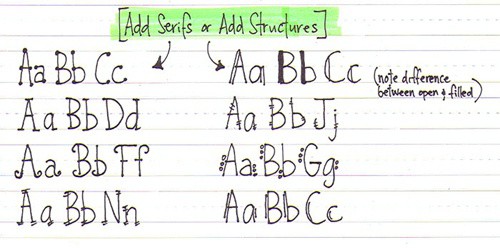 [Add Serifs or Add Structures]
Aa Bb Cc
Aa Bb Cc
(note difference
between open & filled)
Aa Bb Dd
Aa Bb Jj
Aa Bb Ff
Aa Bb Gg
Aa Bb Nn
Aa Bb Cc